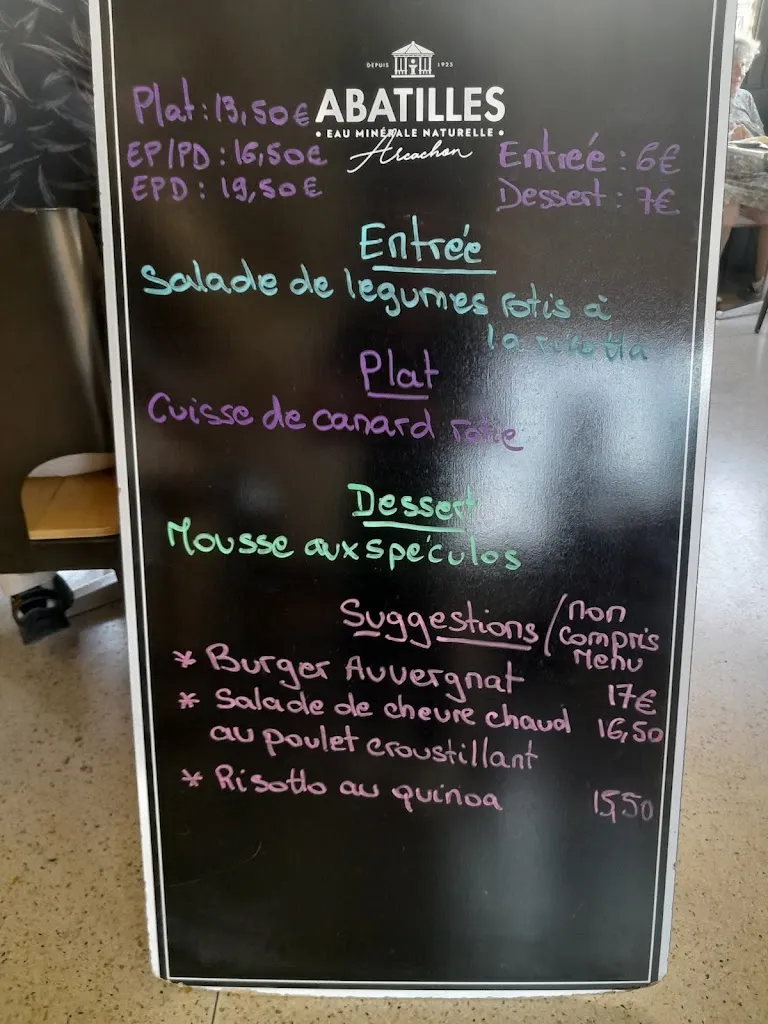 DEPUIS 1925
ABATILLES
• EAU MINÉRALE NATURELLE •
Arcachon
Plat : 13,50€
EP/PD : 16,50€
EPD : 19,50€
Entreé : 6€
Dessert : 7€
Entrée
Salade de legumes rotis à
la ricotta
Plat
Cuisse de canard rotie
Dessert
Mousse aux spéculos
Suggestions / non
compris
Menu
* Burger Auvergnat 17€
* Salade de chevre chaud 16,50
au poulet croustillant
* Risotto au quinoa 15,50